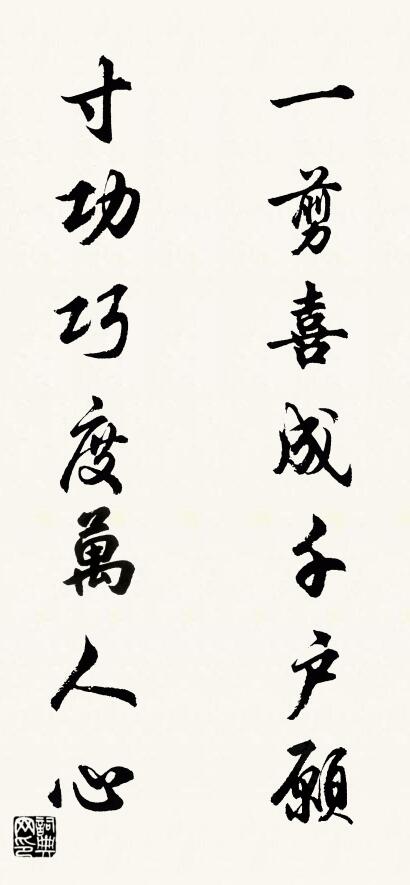 一剪喜成千户願
寸功巧度萬人心
詞典网印